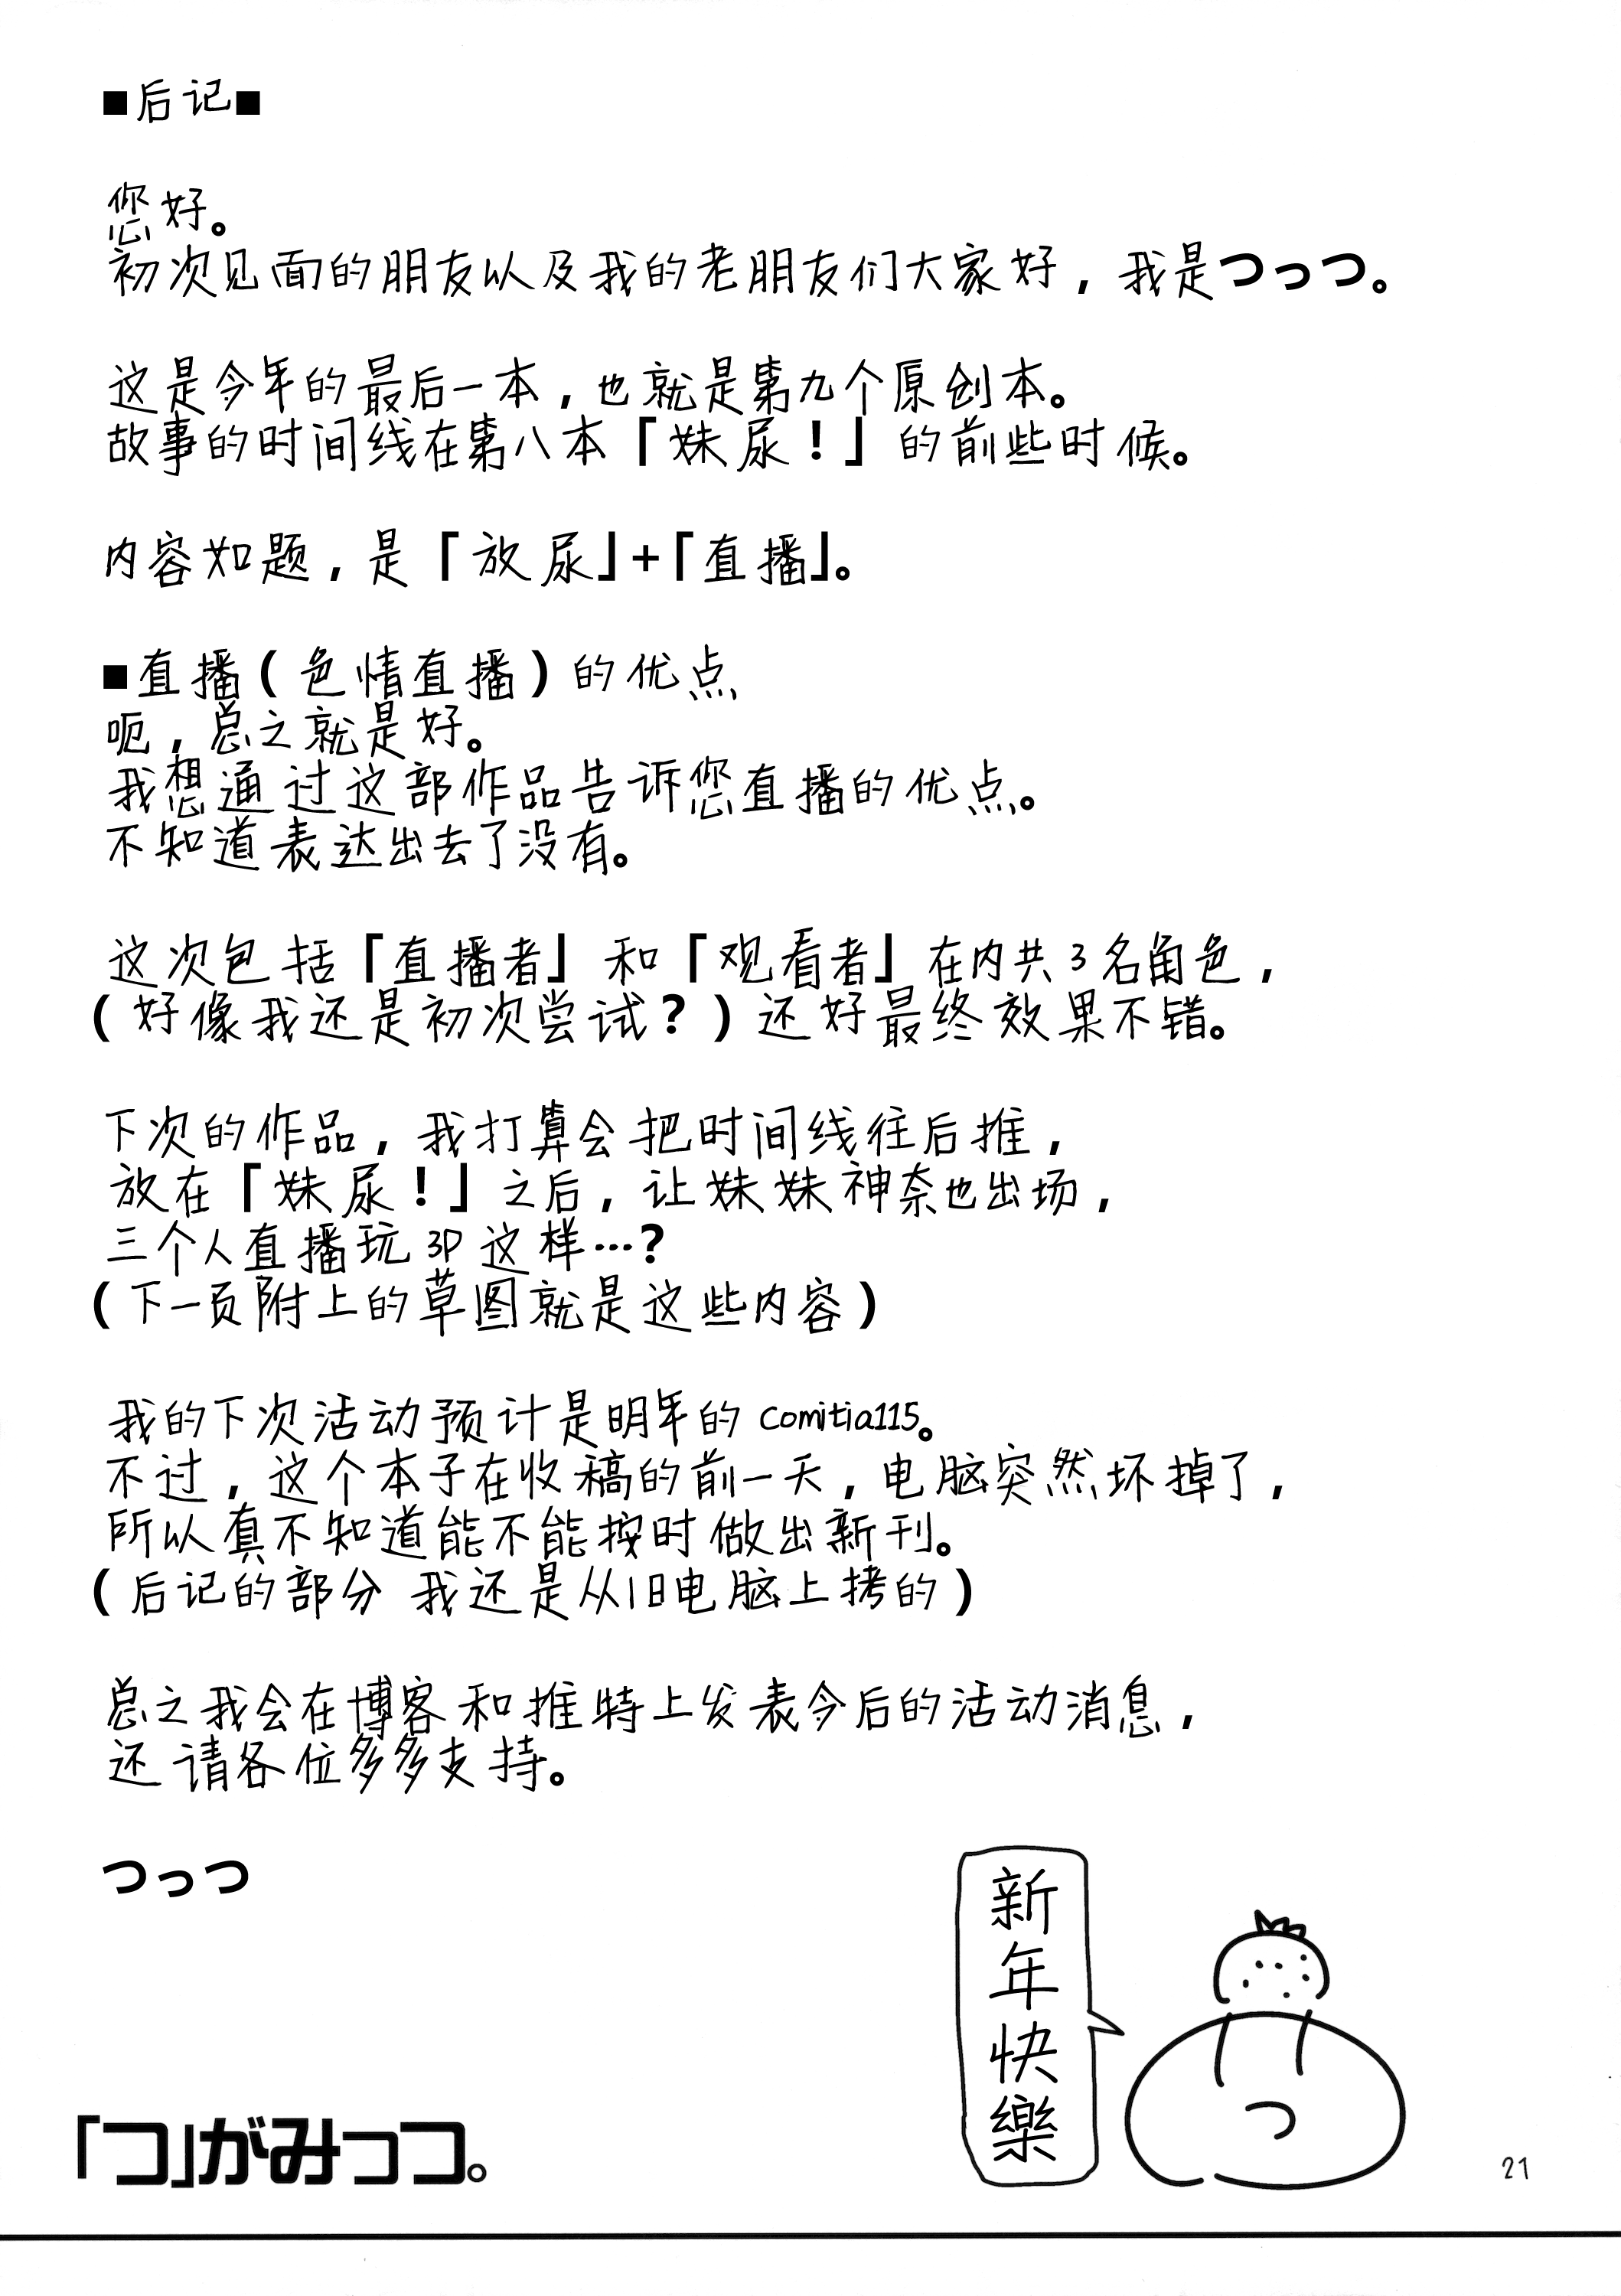 ■后记■
您好。
初次见面的朋友以及我的老朋友们大家好，我是つっつ。
这是今年的最后一本，也就是第九个原创本。
故事的时间线在第八本「妹尿！」的前些时候。
内容如题，是「放尿」+「直播」。
■直播(色情直播)的优点
呃，总之就是好。
我想通过这部作品告诉您直播的优点。
不知道表达出去了没有。
这次包括「直播者」和「观看者」在内共3名角色，
(好像我还是初次尝试？)还好最终效果不错。
下次的作品，我打算会把时间线往后推，
放在「妹尿！」之后，让妹妹神奈也出场，
三个人直播玩3P这样…？
(下一页附上的草图就是这些内容)
我的下次活动预计是明年的comitia115。
不过，这个本子在收稿的前一天，电脑突然坏掉了，
所以真不知道能不能按时做出新刊。
(后记的部分 我还是从旧电脑上拷的)
总之我会在博客和推特上发表今后的活动消息，
还请各位多多支持。
つっつ
新年快樂
つ
「つ」がみっつ。
21